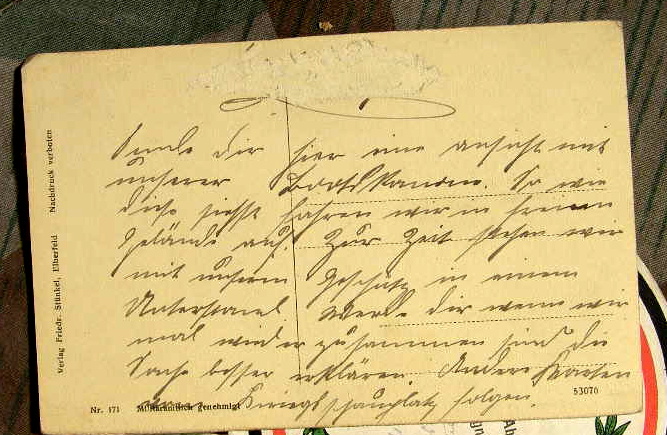 Sende dir hier eine ansicht mit
unserer Bootskanone. So wie
du's siehst fahren wir in freien
Gelände auf. Zur Zeit stehen wir
mit unserm Geschütz in einem
Unterstand. Werde dir wenn wir
mal wieder zusammen sind die
Sache besser erklären. Andere Karten
vom Kriegsschauplatz folgen.
Verlag Friedr. Stünkel, Elberfeld Nachdruck verboten
Nr. 171 Militäramtlich genehmigt
53070